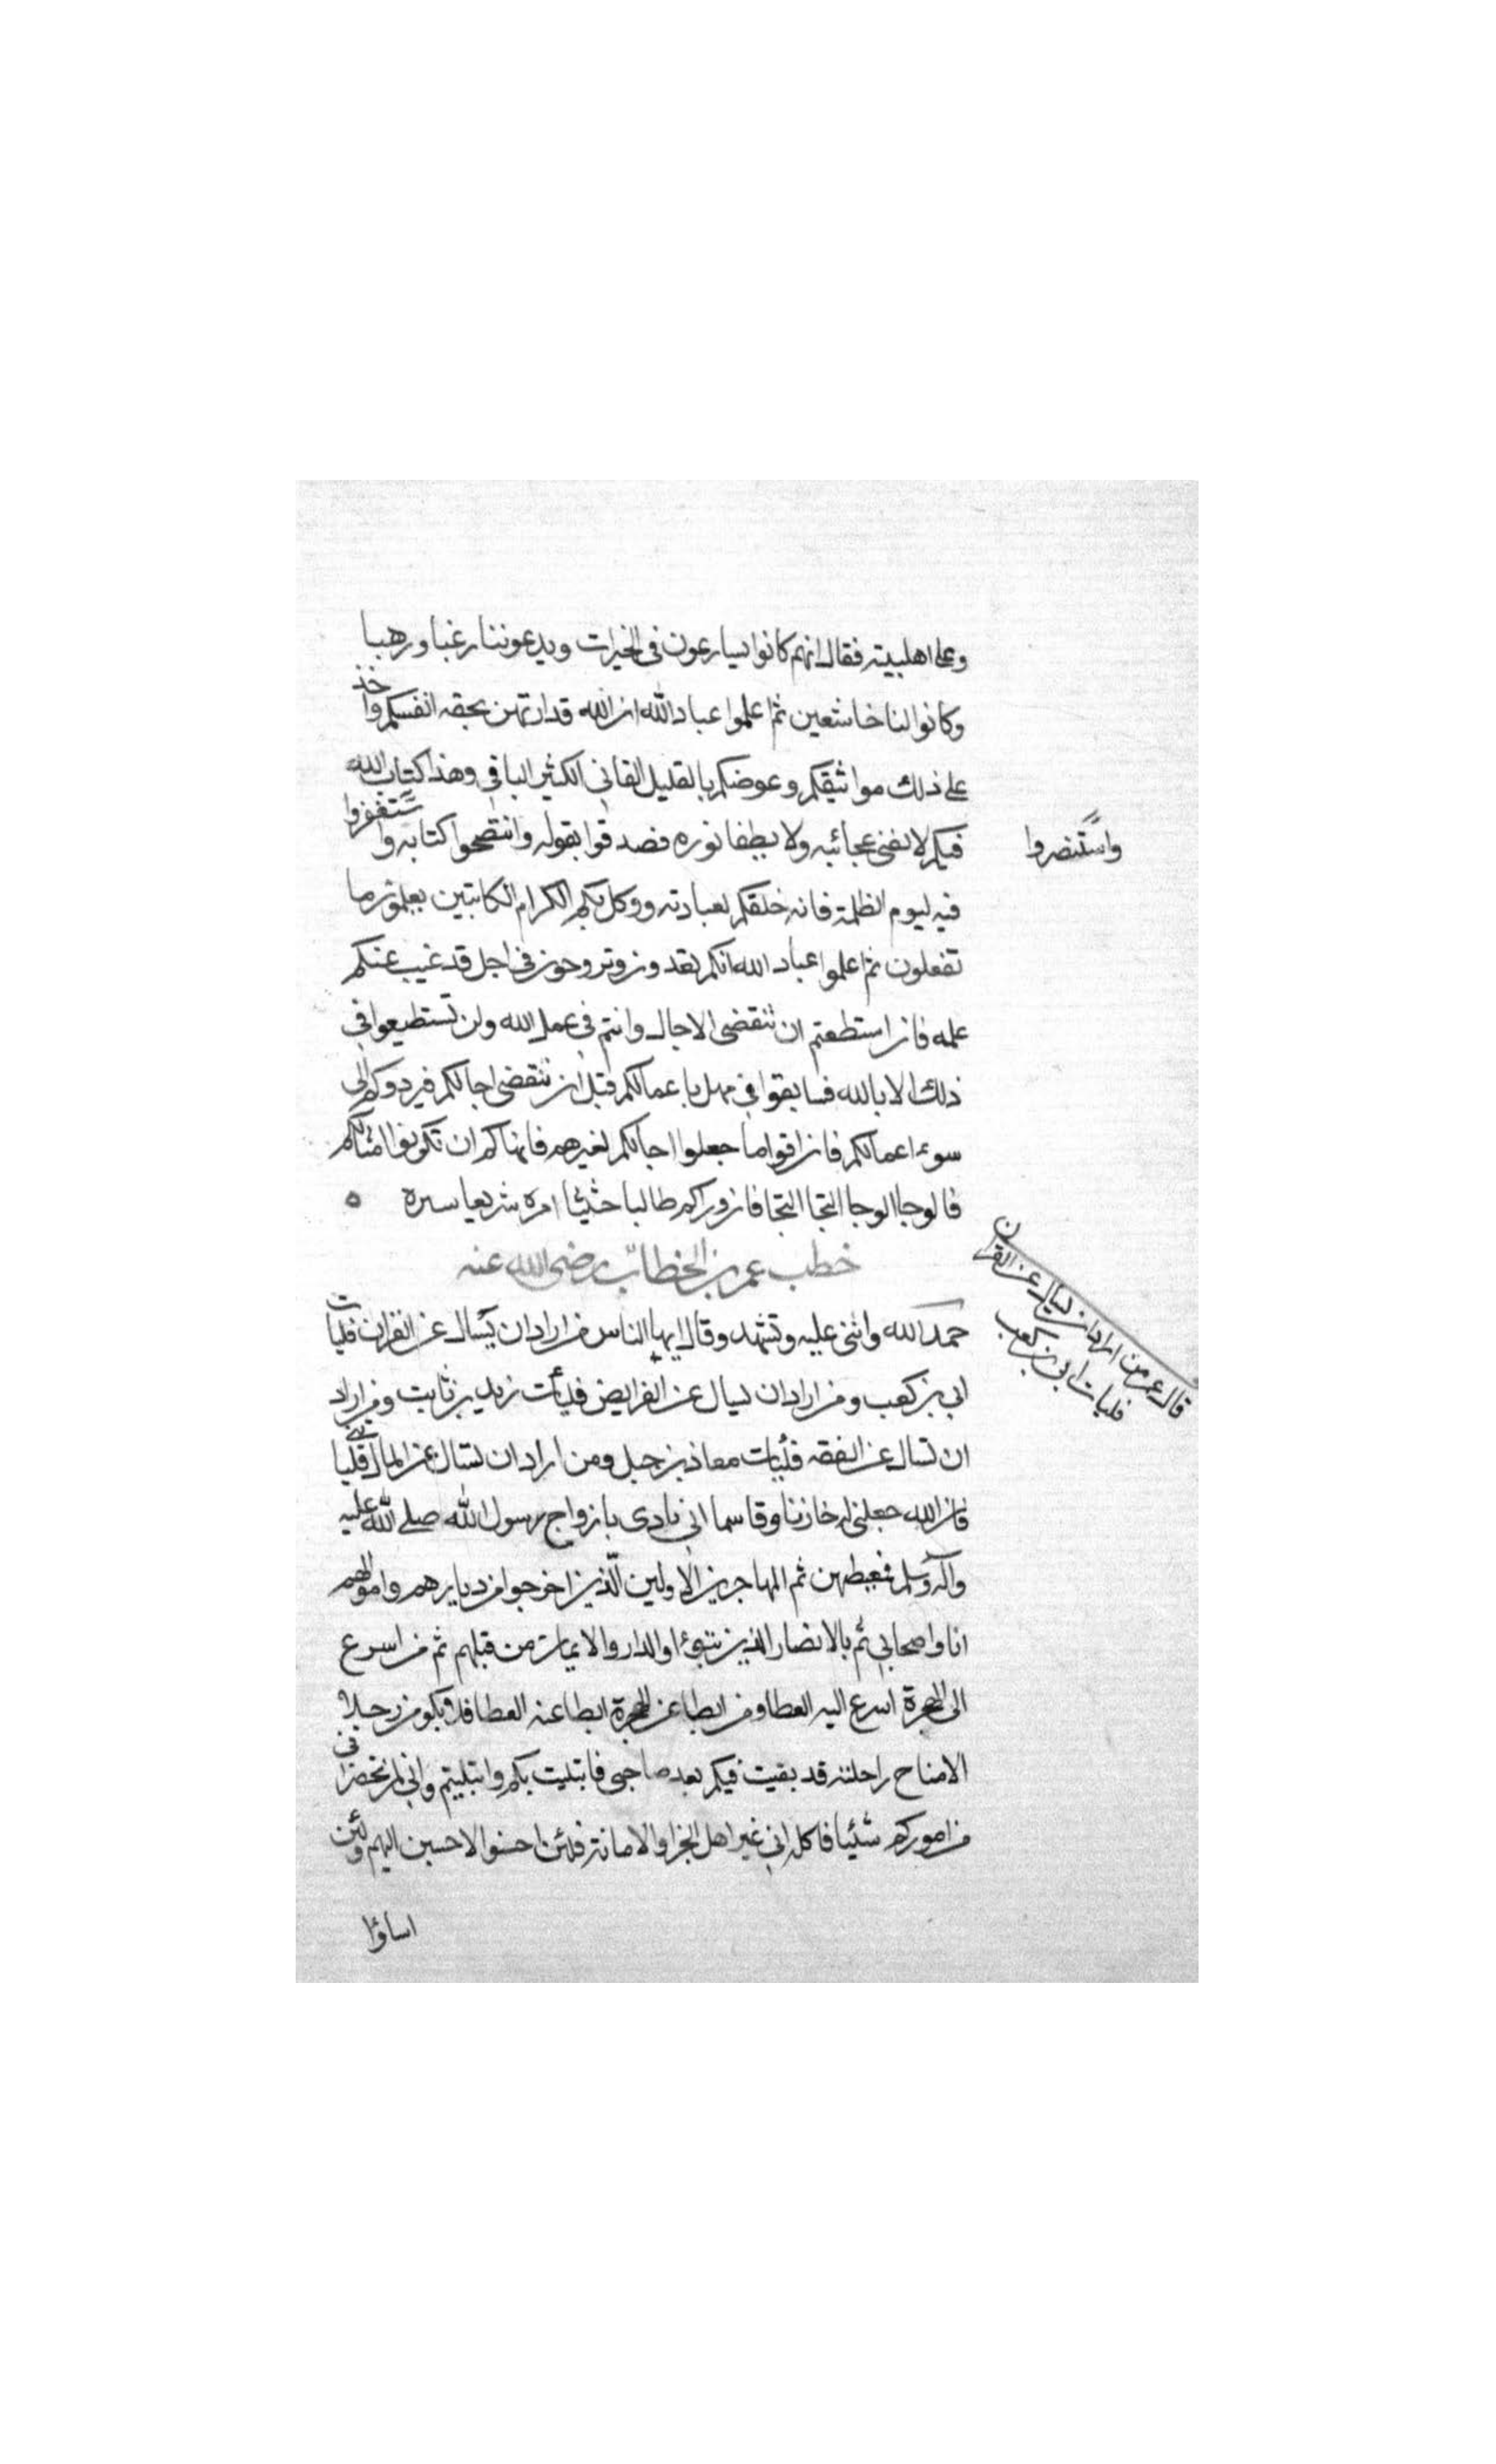 وعلى اهلبيته فقال انهم كانوا يسارعون فى الخيرات ويدعوننا رغبا ورهبا
وكانوا لنا خاشعين ثم اعلموا عباد الله ان الله قد ارتهن بحقه انفسكم واخذ
على ذلك مواثيقكم وعوضكم بالقليل الفانى الكثير الباقى وهذا كتاب الله
فيكم لا يفنى عجائبه ولا يطفا نوره فصدقوا بقوله وانتصحوا كتابه واستغفروا
واستنصروا
فيه ليوم الظلمة فانه خلقكم لعبادته ووكل بكم الكرام الكاتبين يعلمون ما
تفعلون ثم اعلموا عباد الله انكم تغدون وتروحون فى اجل قد غيب عنكم
علمه فان استطعتم ان تنقضى الاجال وانتم فى عمل الله ولن تستطيعوا فى
ذلك الا بالله فسابقوا فى مهل باعمالكم قبل ان تنقضى اجالكم فيردوكم الى
سوء اعمالكم فان اقواما جعلوا اجالكم لغيرهم فانهاكم ان تكونوا امثالكم
فالوحا الوحا النجا النجا فان وراكم طالبا حثيثا امره سريعا سيره
خطب عمر بن الخطاب رضى الله عنه
حمد الله واثنى عليه وتشهد وقال ايها الناس من اراد ان يسال عن القران فليات
قال عمر من اراد ان يسال عن القرن
فليات ابى بن كعب
ابى بن كعب ومن اراد ان يسال عن الفرايض فليأت زيد بن ثابت ومن اراد
ان تسال عن الفقه فليات معاذ بن جبل ومن اراد ان يسال عن المال فلياتنى
فان الله جعلنى له خازنا وقاسما انى بادى بازواج رسول الله صلى الله عليه
وآله وسلم فمعطيهن ثم المهاجرين الاولين الذين اخرجوا من ديارهم واموالهم
انا واصحابى ثم بالانصار الذين تبوءوا الدار والايمان من قبلهم ثم من اسرع
الى الهجرة اسرع اليه العطا ومن ابطا عن الهجرة ابطا عنه العطا فلا يلومن رجلا
الامناح راحلته قد بقيت فيكم بعد صاحبى فابتليت بكم وابتليتم وانى لن تحضرنى
من اموركم شيئا فاكله الى غير اهل الجزا والامانة فلئن احسنوا لاحسين اليهم ولئن
اساؤا